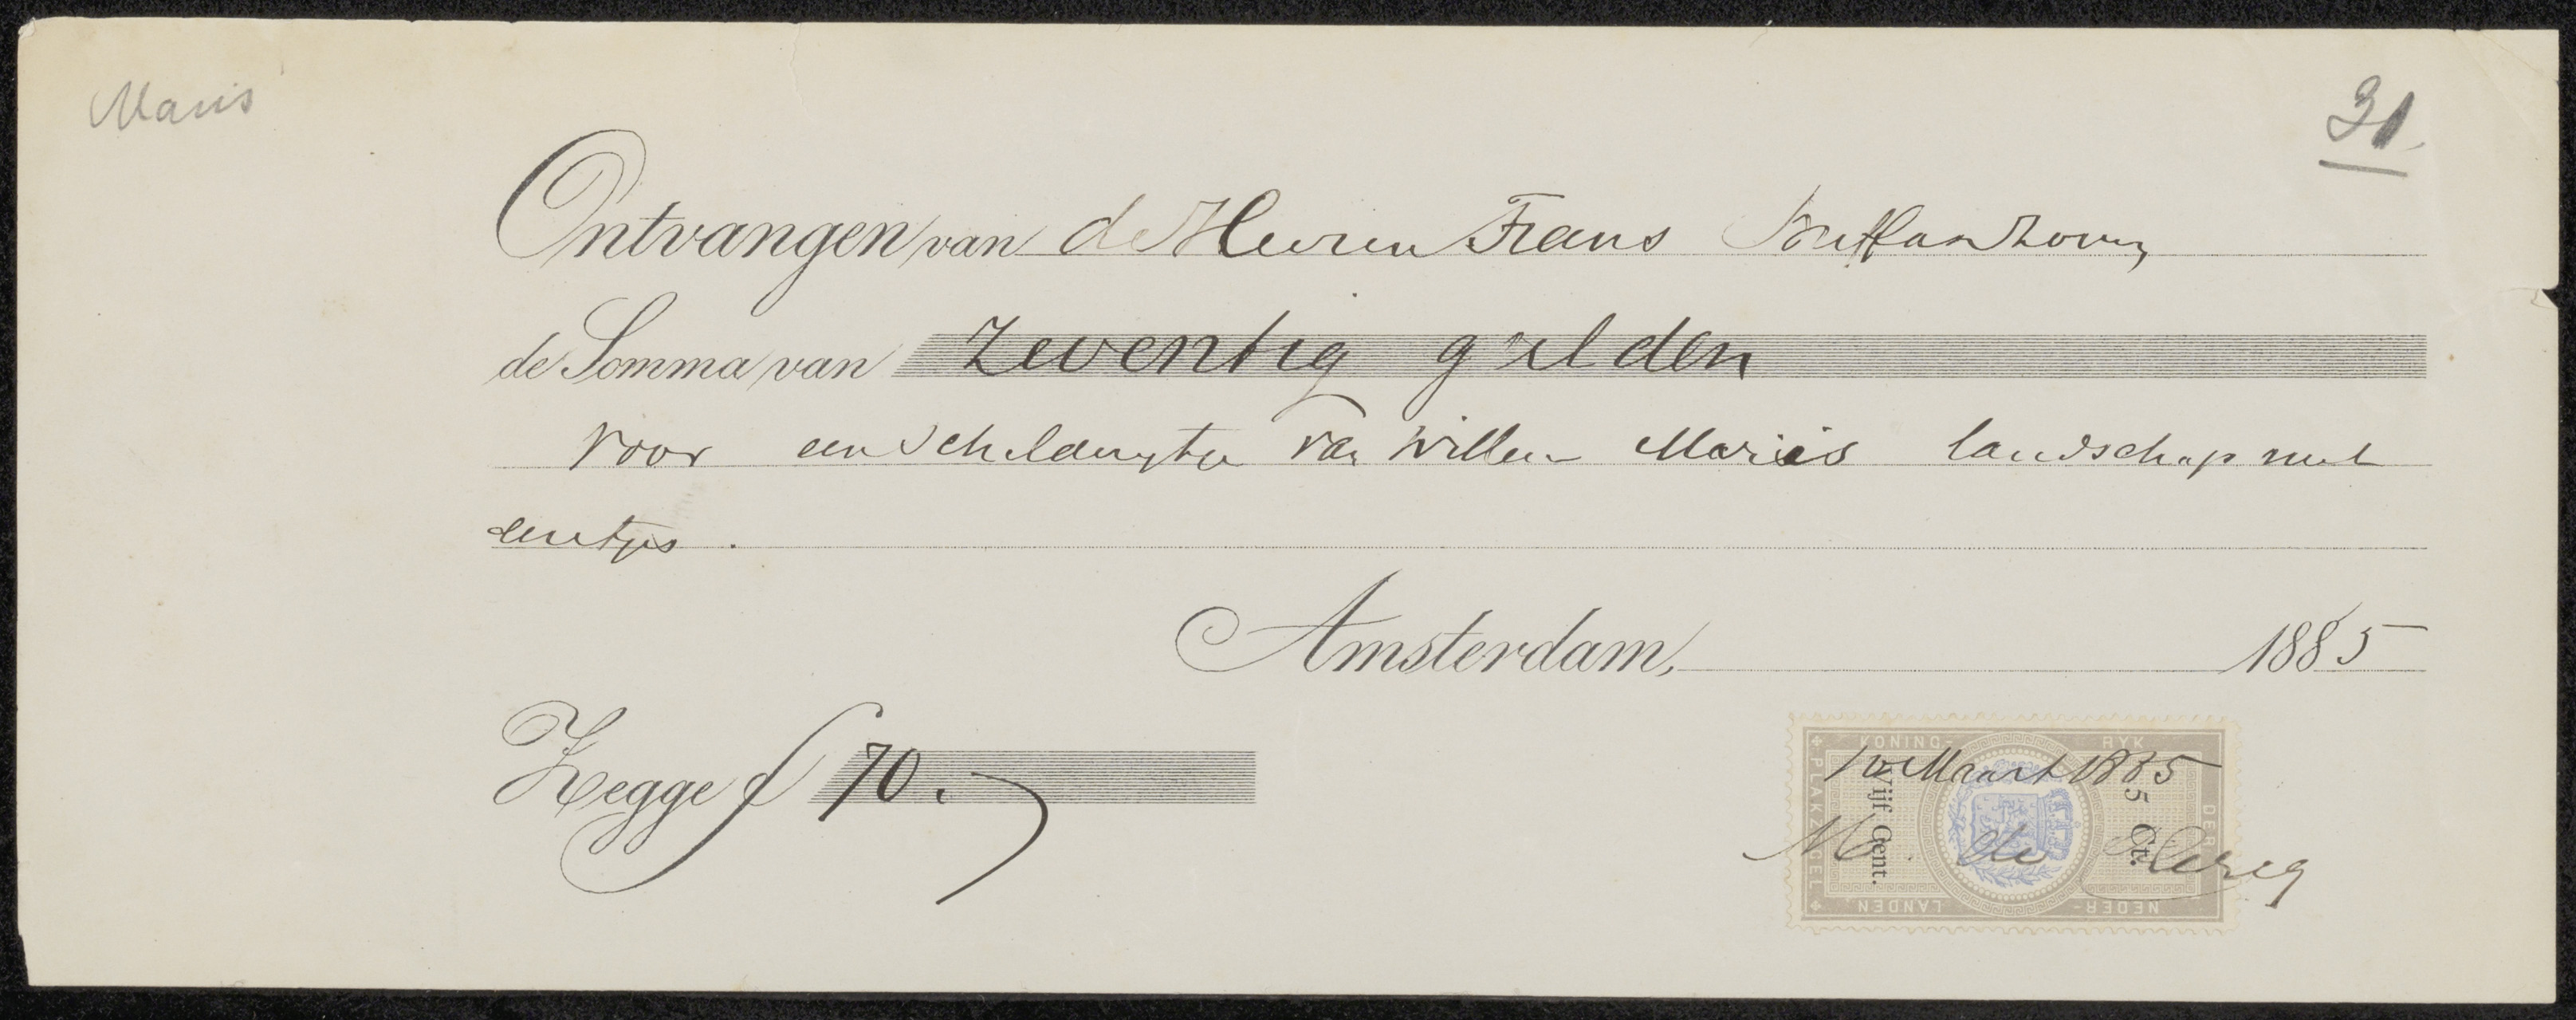 Maris
31
Ontvangen van de Heeren Frans
de Somma van Zeventig gulden
voor een schilderytje van Willem Maris landschap met
eentjes.
Amsterdam, 1885
Zegge f 70.
KONING- RYK DER NEDER- LANDEN
PLAKZEGEL
Vijf Cent.
5 Ct.
Maart 1885
M. de Clercq